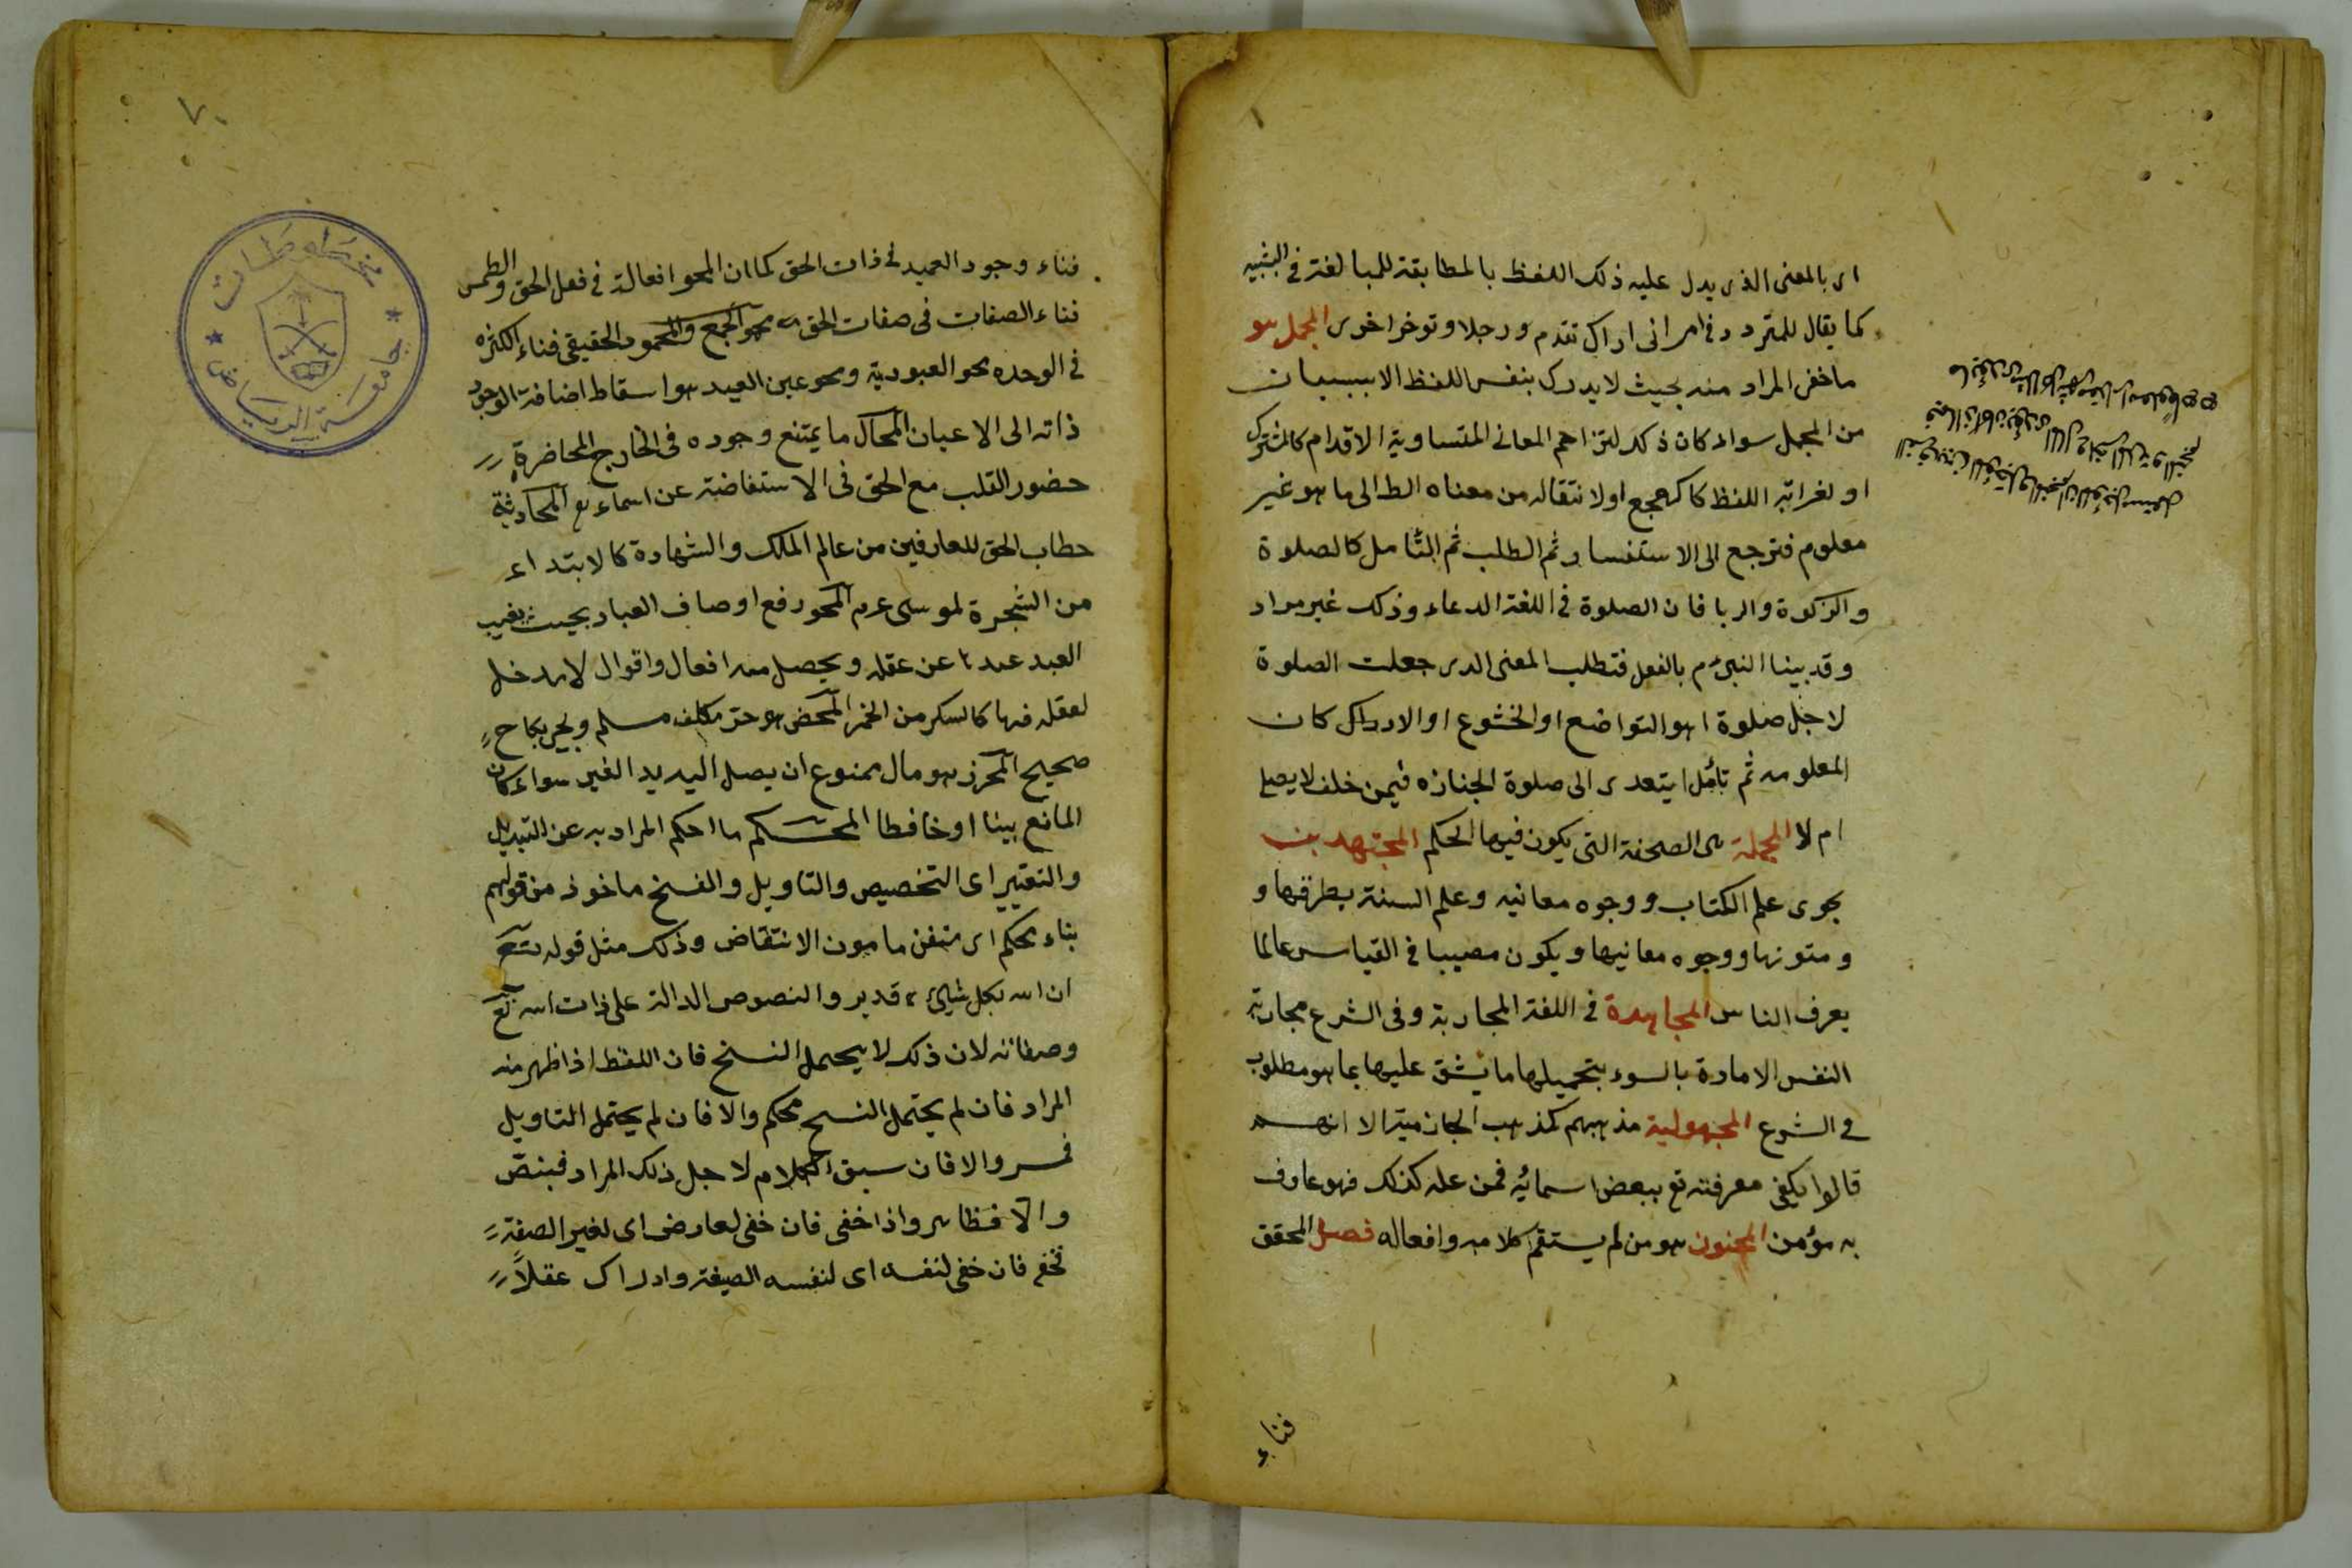 اى بالمعنى الذى يدل عليه ذلك اللفظ بالمطابقة للمبالغة فى التشبيه
كما يقال للمتردد فى امر انى اراك تقدم رجلا وتوخر اخرى المجمل هو
ما خفى المراد منه بحيث لا يدرك بنفس اللفظ الا ببيان
من المجمل سواء كان ذلك لتزاحم المعانى المتساوية الاقدام كالمشترك
او لغرابة اللفظ كالهجع او لانتقاله من معناه الظ الى ما هو غير
معلوم فترجع الى الاستفسار ثم الطلب ثم التامل كالصلوة
والزكوة والربا فان الصلوة فى اللغة الدعاء وذلك غير مراد
وقد بينا النبى م بالفعل فتطلب المعنى الدى جعلت الصلوة
لاجل صلوة اهو التواضع او الخشوع او الاركان
المعلومه ثم تأمل ايتعدى الى صلوة الجنازه فيمن خلف لا يصلى
ام لا المجلة هى الصحفة التى يكون فيها الحكم المجتهد من
يحوى علم الكتاب ووجوه معانيه وعلم السنة بطرقها و
ومتونها ووجوه معانيها ويكون مصيبا فى القياس عالما
بعرف الناس المجاهدة فى اللغة المحاربة وفى الشرع محاربة
النفس الامارة بالسوء بتحميلها ما يشق عليها بما هو مطلوب
فى الشرع المجهولية مذهبهم كمذهب الجازمية الا انهم
قالوا يكفى معرفته تع ببعض اسمائه فمن علمه كذلك فهو عارف
به مؤمن المجنون هو من لم يستقم كلامه وافعاله فصل المحقق
فناء
٧٠
فناء وجود العبد فى ذات الحق كما ان المحو افعاله فى فعل الحق والطمس
فناء الصفات فى صفات الحق محو الجمع والمحو الحقيقى فناء الكثره
فى الوحده محو العبودية ومحو عين العبد هو اسقاط اضافة الوجود
ذاته الى الاعيان المحال ما يمتنع وجوده فى الخارج المحاضرة
حضور القلب مع الحق فى الاستفاضة عن اسماء تع المحادثة
خطاب الحق للعارفين من عالم الملك والشهادة كالابتداء
من الشجرة لموسى عم المحو رفع اوصاف العباد بحيث يغيب
العبد عندها عن عقله ويحصل منه افعال واقوال لا مدخل
لعقله فيها كالسكر من الخمر المحصن هو حر مكلف مسلم وطئ بنكاح
صحيح المحرز هو مال ممنوع ان يصل اليه يد الغير سواء كان
المانع بيتا او حافظا المحكم ما احكم المراد به عن التبديل
والتغيير اى التخصيص والتاويل والنسخ ماخوذ من قولهم
بناء محكم اى متقن مامون الانتقاض وذلك مثل قوله تع
ان الله بكل شيئ قدير والنصوص الدالة على ذات الله تع
وصفاته لان ذلك لا يحتمل النسخ فان اللفظ اذا ظهر منه
المراد فان لم يحتمل النسخ محكم والا فان لم يحتمل التاويل
فمفسر والا فان سبق الكلام لاجل ذلك المراد فنص
والا فظاهر واذا خفى فان خفى لعارض اى لغير الصيغة
فخفى فان خفى لنفسه اى لنفسه الصيغة وادراك عقلا
جامعة الرياض
مخطوطات